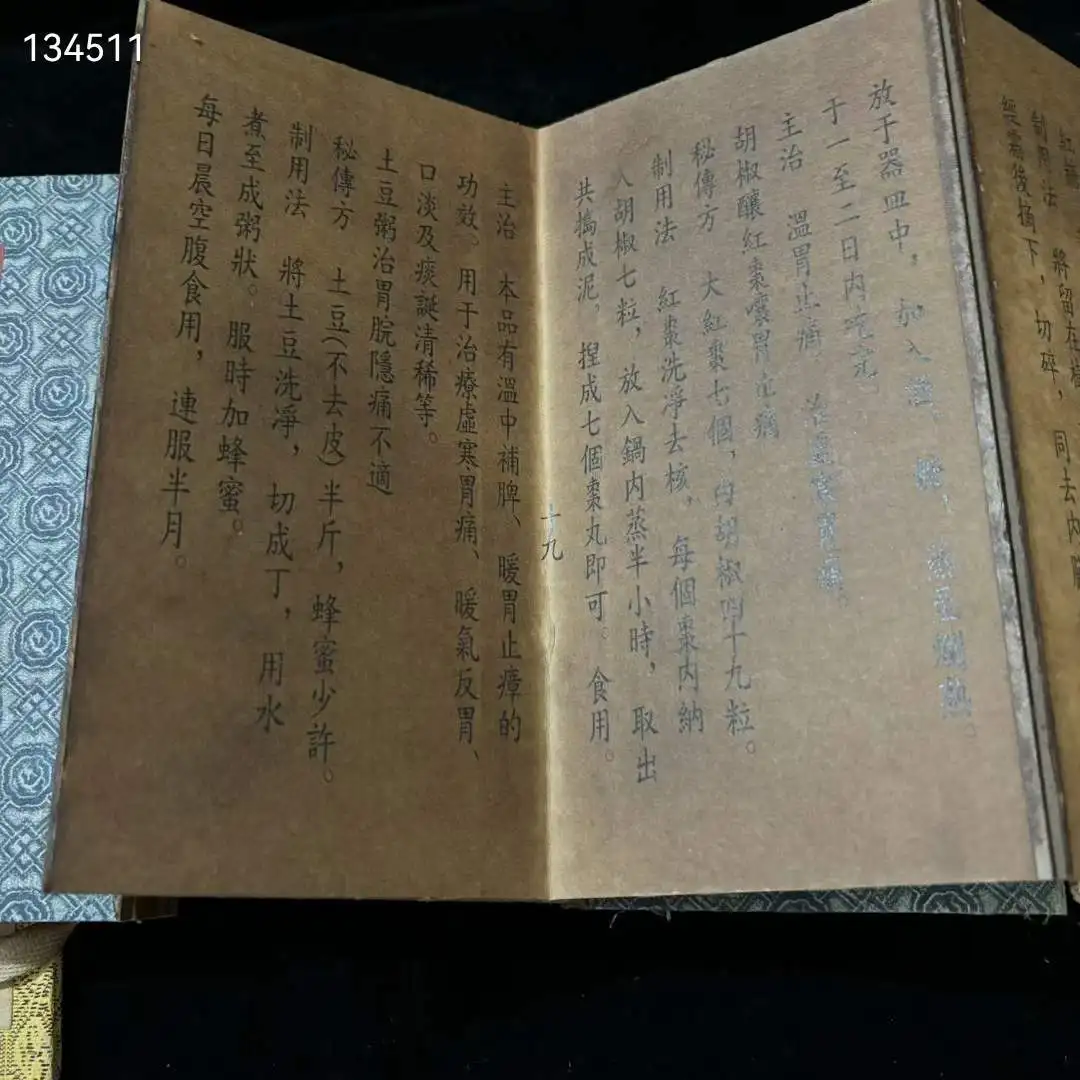 134511
紅
制用法 將留在
經霜後摘下，切碎，同去內
放于器皿中，加入
于一至二日內吃完
主治 溫胃止痛，治虛寒胃痛。
胡椒釀紅棗
秘傳方 大紅棗七個，白胡椒四十九粒。
制用法 紅棗洗淨去核，每個棗內納
入胡椒七粒，放入鍋內蒸半小時，取出
共搗成泥，捏成七個棗丸即可。食用。
十九
主治 本品有溫中補脾、暖胃止瘴的
功效。用于治療虛寒胃痛、暖氣反胃、
口淡及痰誕清稀等。
土豆粥治胃脘隱痛不適
秘傳方 土豆(不去皮)半斤，蜂蜜少許。
制用法 將土豆洗淨，切成丁，用水
煮至成粥狀。服時加蜂蜜。
每日晨空腹食用，連服半月。